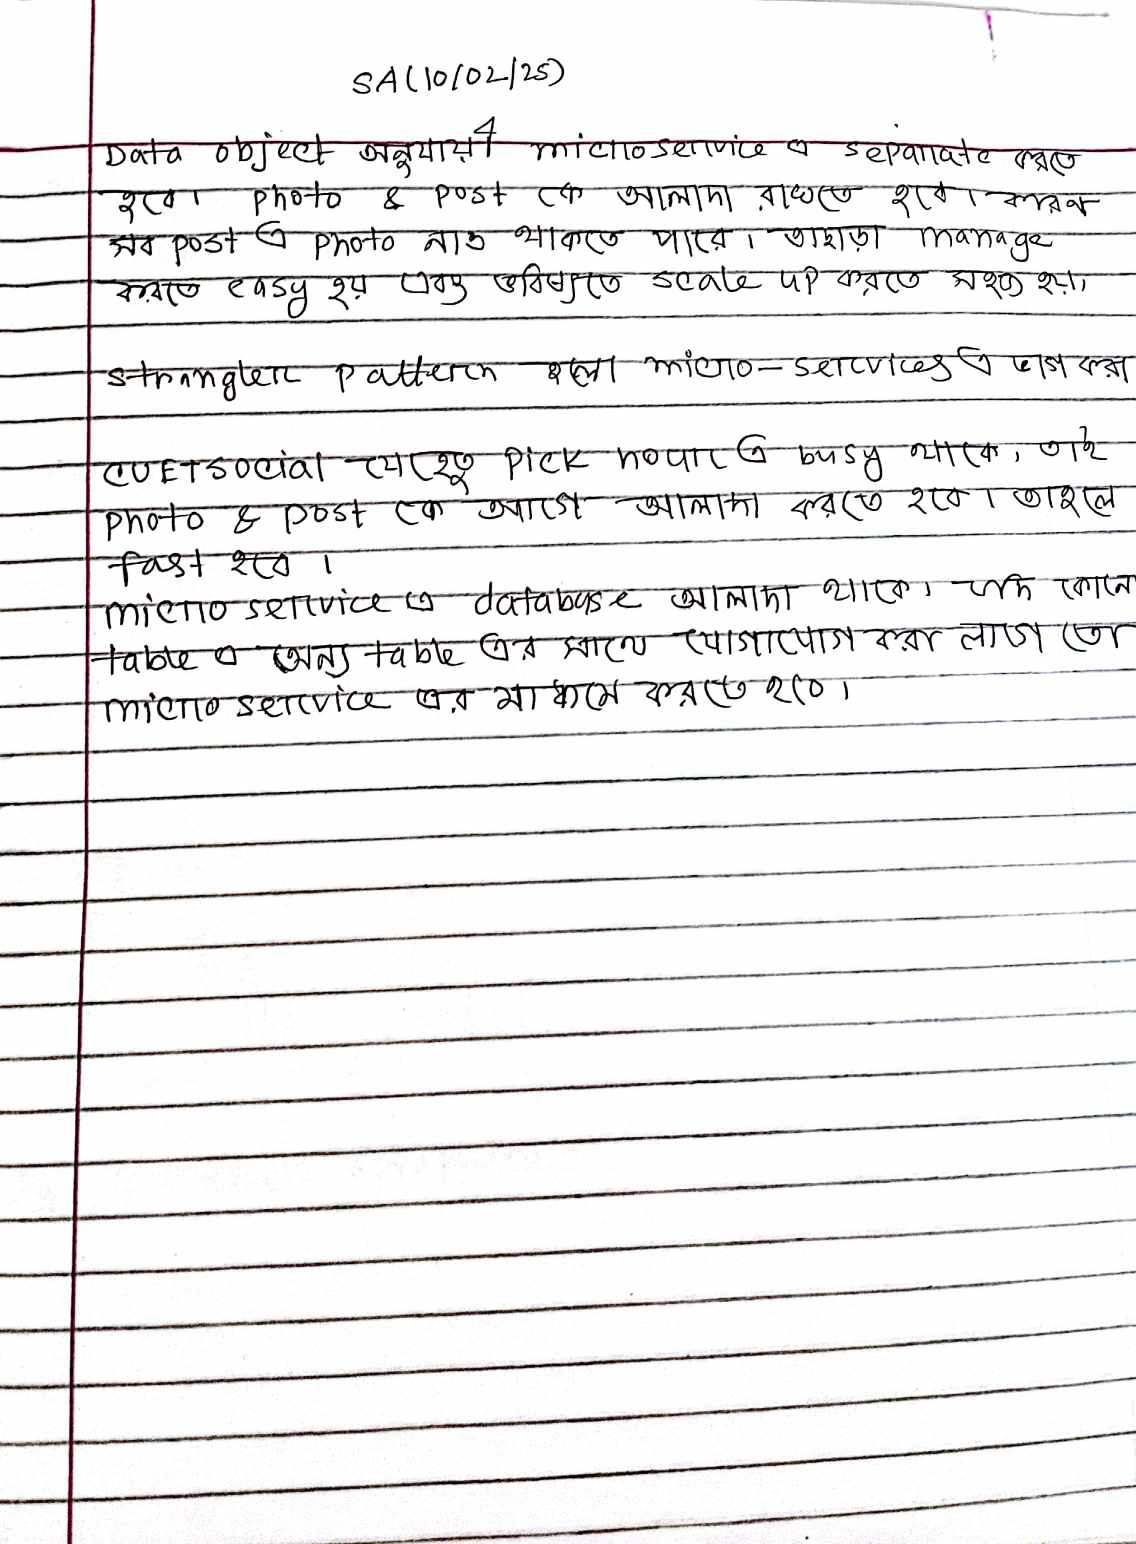 SA(10/02/25)
Data object অনুযায়ী microservice এ separate করতে
হবে। photo & post কে আলাদা রাখতে হবে। কারণ
সব post এ photo নাও থাকতে পারে। তাছাড়া manage
করতে easy হয় এবং ভবিষ্যতে scale up করতে সহজ হয়।
strangler pattern হলো micro-services এ ভাগ করা
CUETsocial যেহেতু pick hour এ busy থাকে, তাই
photo & post কে আগে আলাদা করতে হবে। তাহলে
fast হবে।
microservice এ database আলাদা থাকে। যদি কোনো
table এ অন্য table এর সাথে যোগাযোগ করা লাগে তো
microservice এর মাধ্যমে করতে হবে।